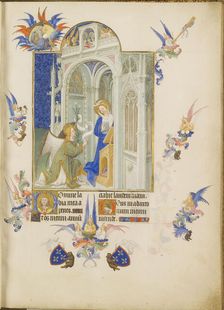 Domine la
bia mea a
peries.
os meum annun
ciabit laudem tuam.
Deus in adiuto
rium meum
intende